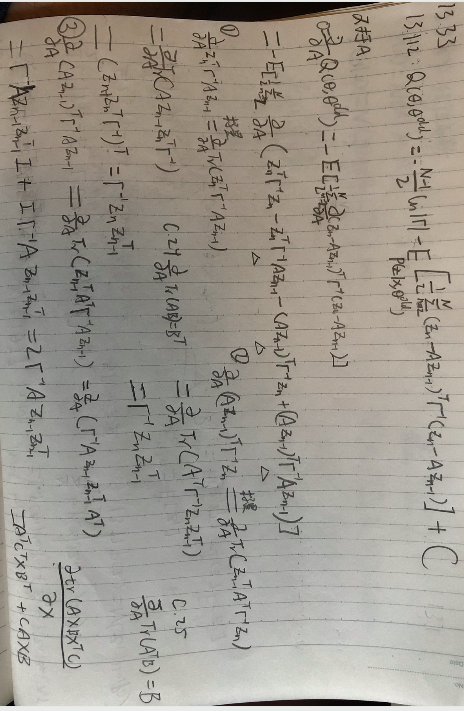 13.33
13.112: Q(θ,θ^old) = -\frac{N-1}{2} ln|Γ| - E_{p(z|x,θ^old)} [\frac{1}{2} \sum_{n=2}^{N} (z_n - Az_{n-1})^T Γ^{-1} (z_n - Az_{n-1})] + C
\frac{∂}{∂A} Q(θ,θ^old) = -E[\frac{1}{2} \sum_{n=2}^{N} \frac{∂}{∂A} (z_n - Az_{n-1})^T Γ^{-1} (z_n - Az_{n-1})]
= -E[\frac{1}{2} \sum_{n=2}^{N} \frac{∂}{∂A} (z_n^T Γ^{-1} z_n - z_n^T Γ^{-1} Az_{n-1} - (Az_{n-1})^T Γ^{-1} z_n + (Az_{n-1})^T Γ^{-1} Az_{n-1})]
① \frac{∂}{∂A} z_n^T Γ^{-1} Az_{n-1} = \frac{∂}{∂A} Tr(z_n^T Γ^{-1} Az_{n-1})
= \frac{∂}{∂A} Tr(Az_{n-1} z_n^T Γ^{-1})
C.24 \frac{∂}{∂A} Tr(AB) = B^T
= (z_{n-1} z_n^T Γ^{-1})^T = Γ^{-1} z_n z_{n-1}^T
② \frac{∂}{∂A} (Az_{n-1})^T Γ^{-1} z_n = \frac{∂}{∂A} Tr(z_{n-1}^T A^T Γ^{-1} z_n)
= \frac{∂}{∂A} Tr(A^T Γ^{-1} z_n z_{n-1}^T)
= Γ^{-1} z_n z_{n-1}^T
C.25 \frac{∂}{∂A} Tr(A^T B) = B
③ \frac{∂}{∂A} (Az_{n-1})^T Γ^{-1} Az_{n-1} = \frac{∂}{∂A} Tr(z_{n-1}^T A^T Γ^{-1} Az_{n-1}) = \frac{∂}{∂A} (Γ^{-1} A z_{n-1} z_{n-1}^T A^T)
= Γ^{-1} A z_{n-1} z_{n-1}^T I + I Γ^{-1} A z_{n-1} z_{n-1}^T = 2Γ^{-1} A z_{n-1} z_{n-1}^T
\frac{∂tr(AXBX^T C)}{∂X}
= A^T C^T X B^T + CAXB